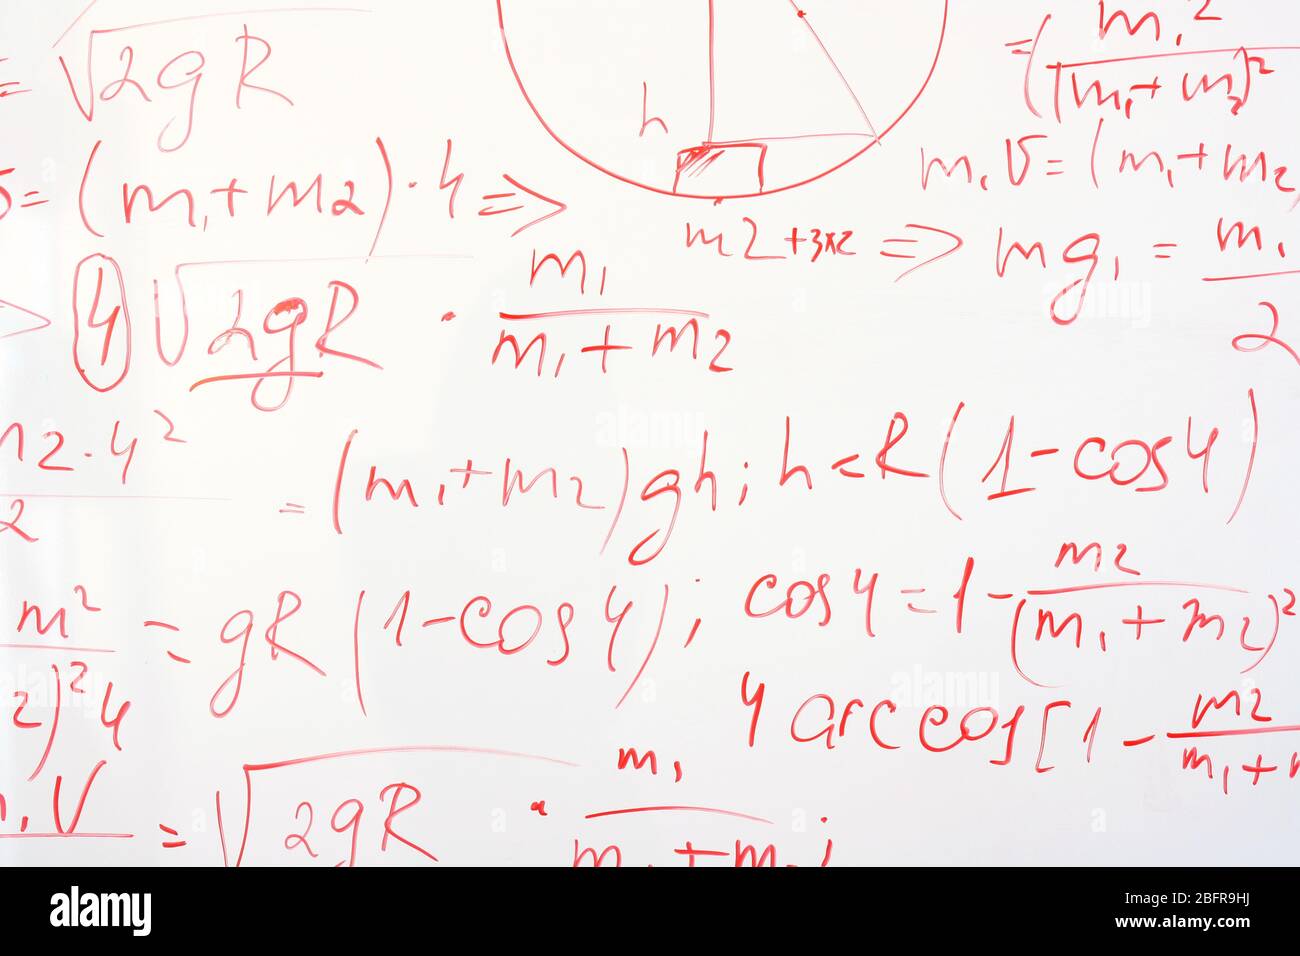 = √2gR
= (m₁+m2)·4 =>
h
m2+3x2 => mg₁ = m₁/2
= (m₁²/(m₁+m2)²
m₁v = (m₁+m2
4 √2gR · m₁/(m₁+m2)
m2·4²/2 = (m₁+m2)gh; h=R(1-cos4)
m² = gR(1-cos4); cos4=1-m2/(m₁+m2)²
2)²4
4 arccos[1-m2/m₁+
V = √2gR · m₁/(m₁+m2);
alamy
Image ID: 2BFR9HJ
www.alamy.com